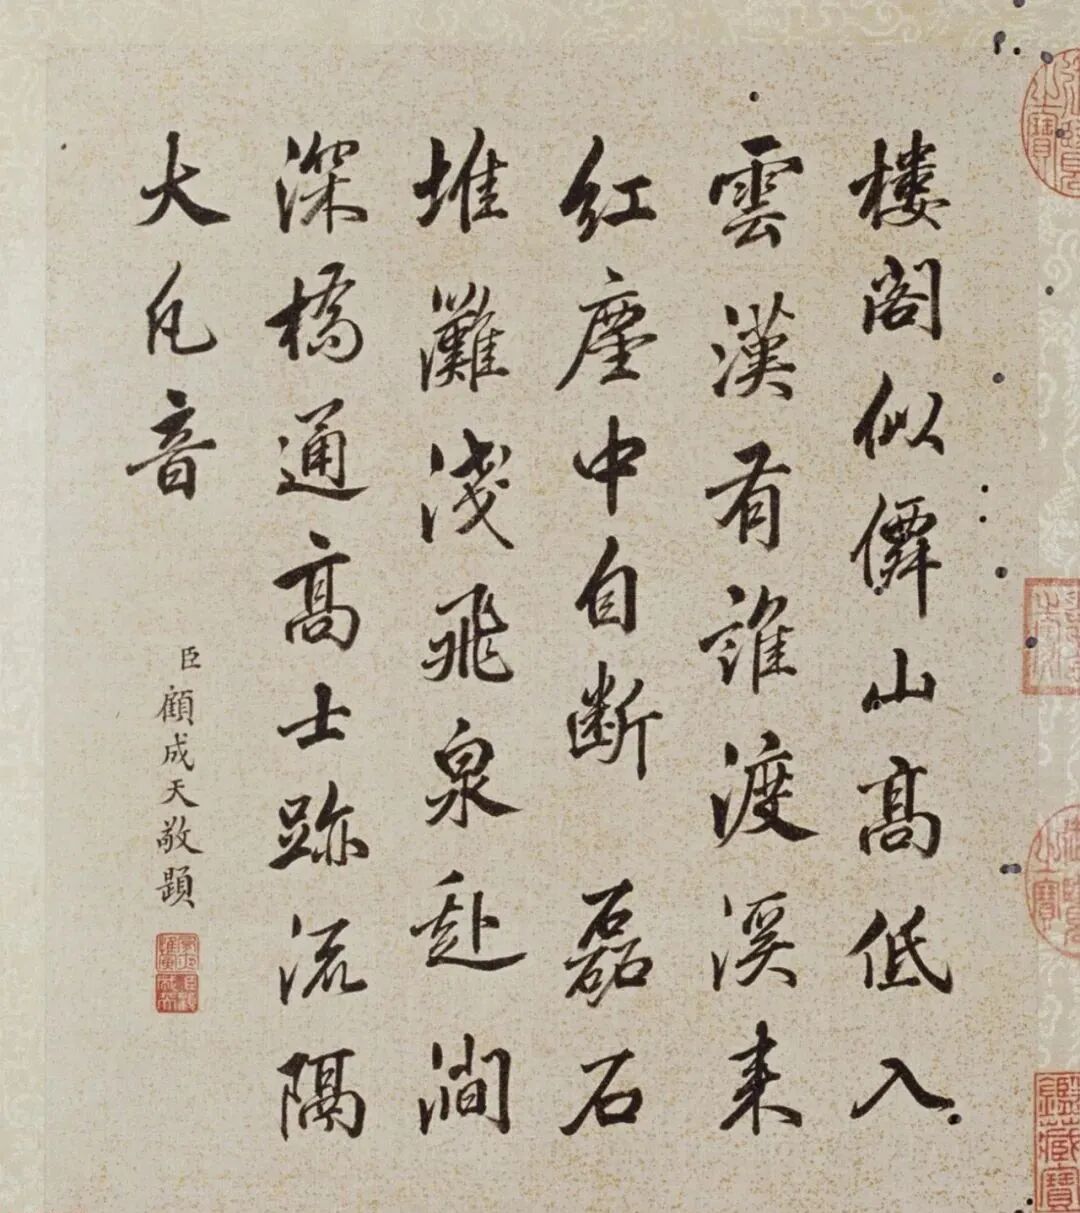 樓閣似僊山髙低入
雲漢有誰渡溪来
紅塵中自断 磊石
堆灘淺飛泉赴澗
深橋通髙士跡流隔
大凡音
臣顧成天敬題
鑑藏寶